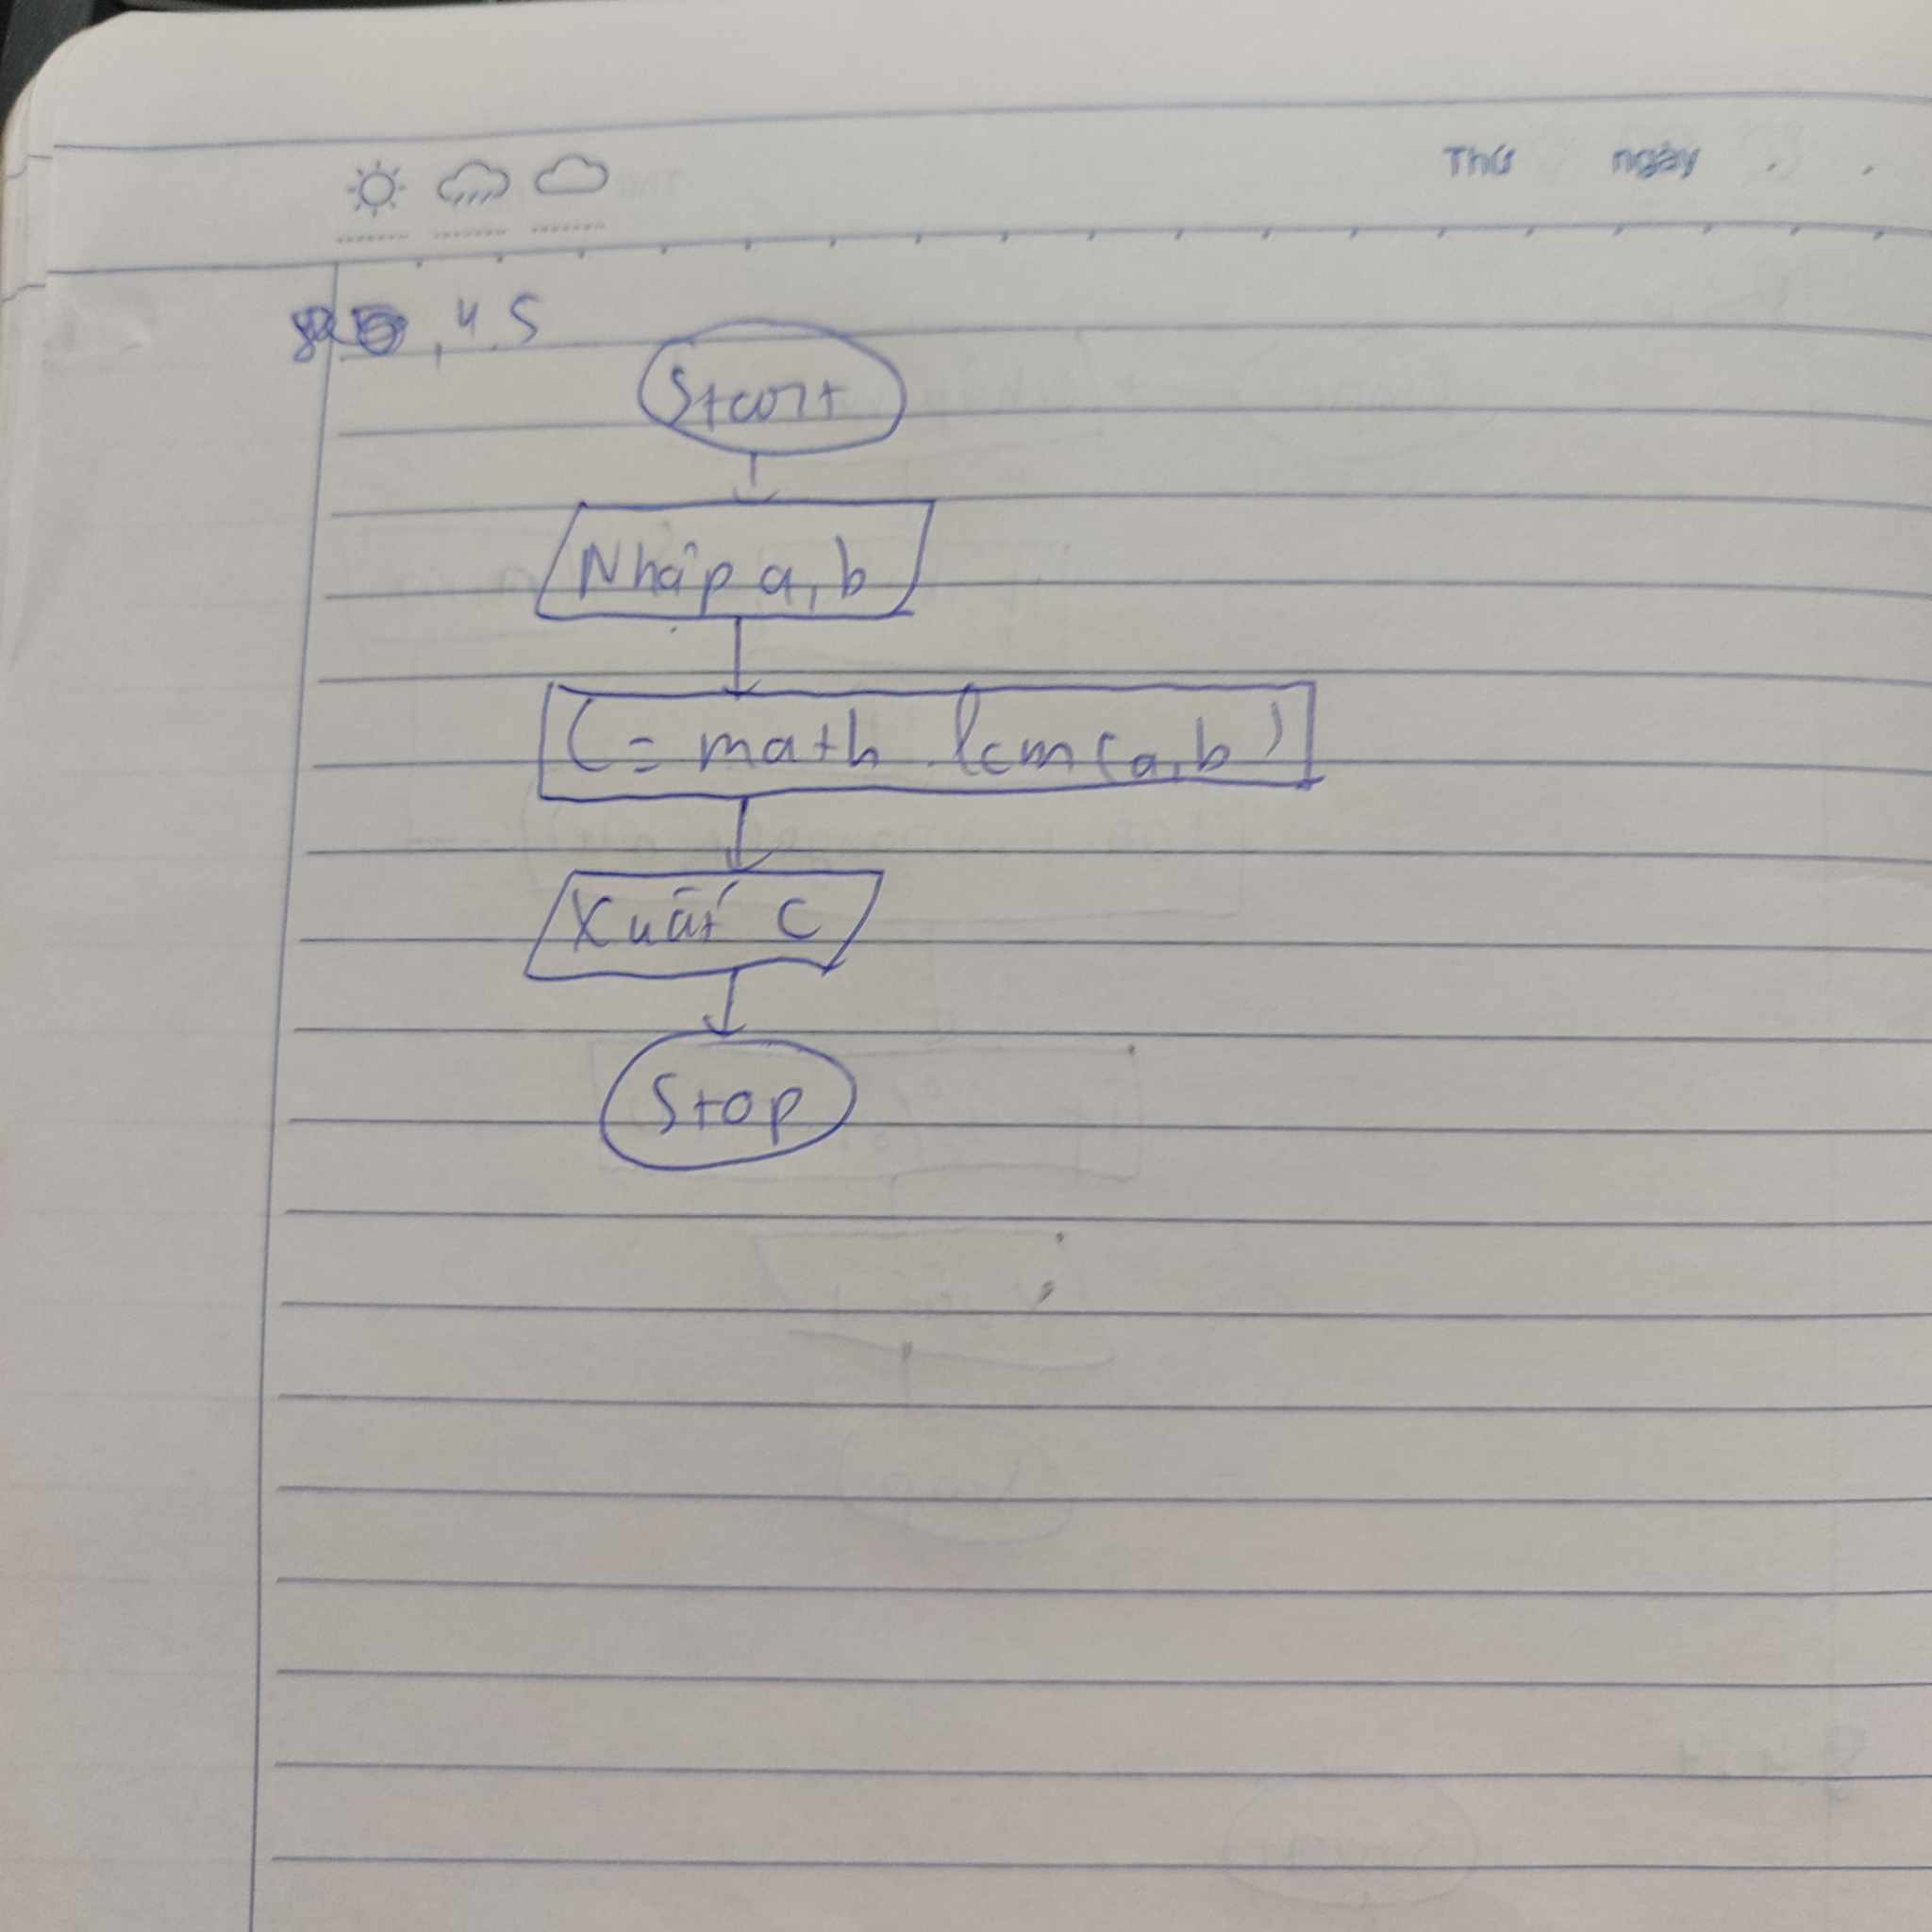 Thứ ngày
, 4.5
Start
Nhập a, b
C = math.lcm(a,b)
Xuất C
Stop